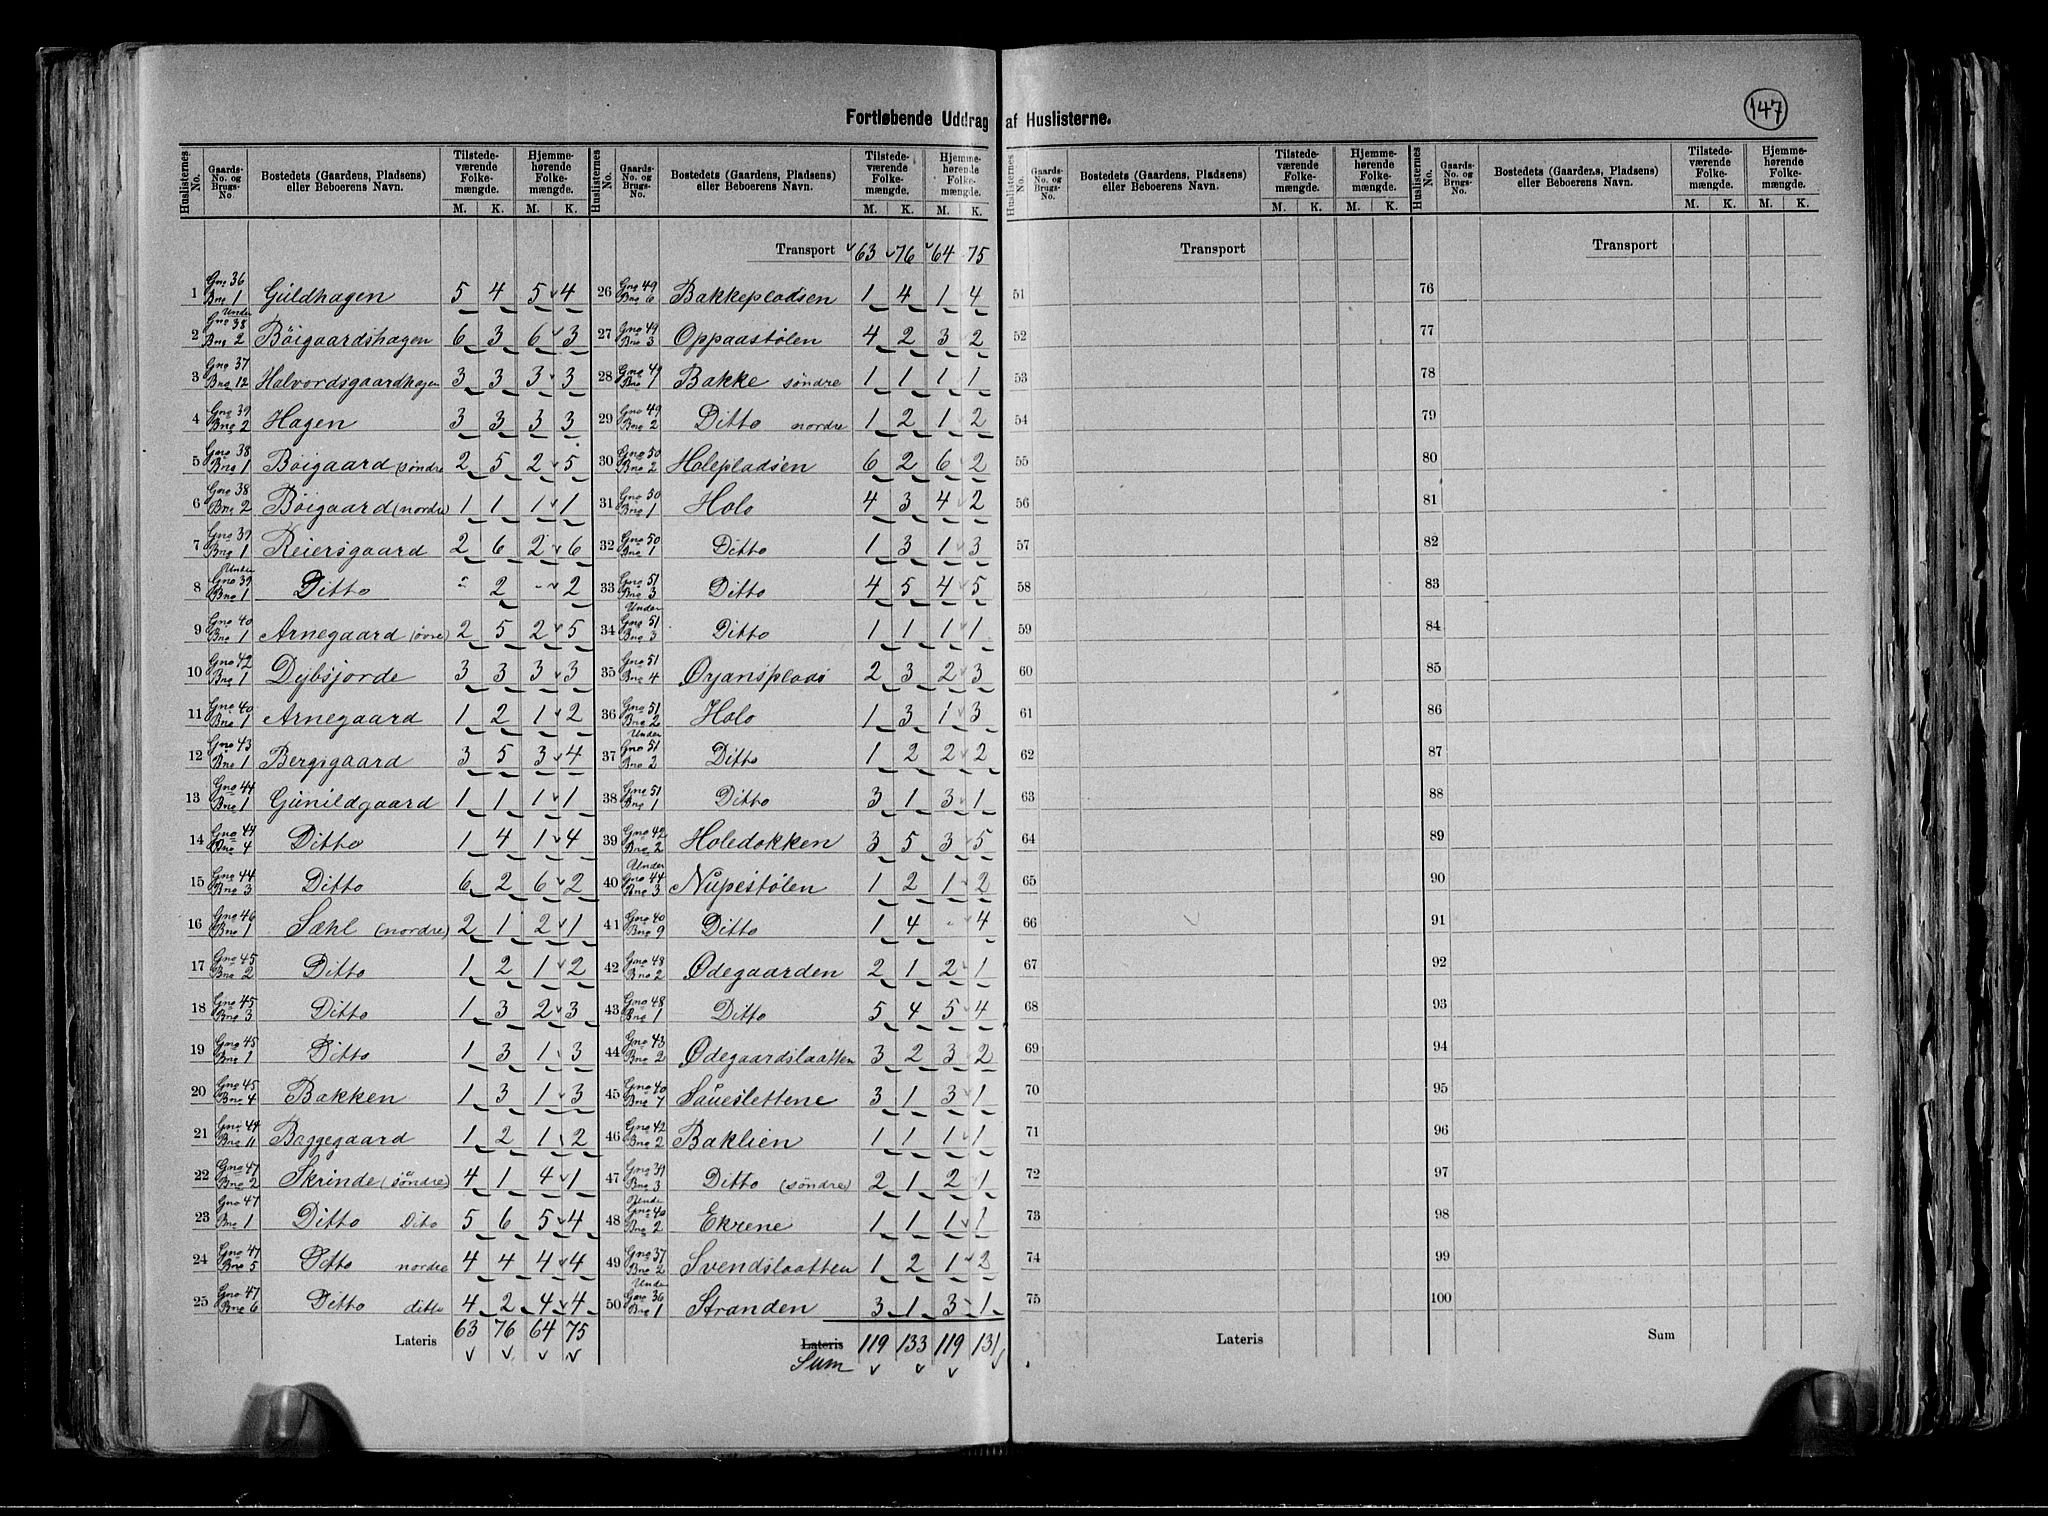 147
Fortløbende Uddrag af Huslisterne.
Huslisternes No. | Gaards-No. og Brugs-No. | Bostedets (Gaardens, Pladsens) eller Beboerens Navn. | Tilstedeværende Folkemængde. M. K. | Hjemmehørende Folkemængde. M. K.
1 Gno 36 Bno 1 Guldhagen 5 4 5 4
2 Under Gno 38 Bno 2 Bøigaardshagen 6 3 6 3
3 Gno 37 Bno 12 Halvordsgaardhagen 3 3 3 3
4 Gno 39 Bno 2 Hagen 3 3 3 3
5 Gno 38 Bno 1 Bøigaard (søndre 2 5 2 5
6 Gno 38 Bno 2 Bøigaard (nordre) 1 1 1 1
7 Gno 39 Bno 1 Reiersgaard 2 6 2 6
8 Under Gno 39 Bno 1 Ditto - 2 - 2
9 Gno 40 Bno 1 Arnegaard (øvre) 2 5 2 5
10 Gno 42 Bno 1 Dybsjorde 3 3 3 3
11 Gno 40 Bno 1 Arnegaard 1 2 1 2
12 Gno 43 Bno 1 Bergsgaard 3 5 3 4
13 Gno 44 Bno 1 Gunildgaard 1 1 1 1
14 Gno 44 Bno 4 Ditto 1 4 1 4
15 Gno 44 Bno 3 Ditto 6 2 6 2
16 Gno 46 Bno 1 Sæhl (nordre) 2 1 2 1
17 Gno 45 Bno 2 Ditto 1 2 1 2
18 Gno 45 Bno 3 Ditto 1 3 2 3
19 Gno 45 Bno 1 Ditto 1 3 1 3
20 Gno 45 Bno 4 Bakken 1 3 1 3
21 Gno 44 Bno 11 Baggegaard 1 2 1 2
22 Gno 47 Bno 2 Skrinde (søndre) 4 1 4 1
23 Gno 47 Bno 1 Ditto Dito 5 6 5 4
24 Gno 47 Bno 5 Ditto nordre 4 4 4 4
25 Gno 47 Bno 6 Ditto ditto 4 2 4 4
Lateris 63 76 64 75
Huslisternes No. | Gaards-No. og Brugs-No. | Bostedets (Gaardens, Pladsens) eller Beboerens Navn. | Tilstedeværende Folkemængde. M. K. | Hjemmehørende Folkemængde. M. K.
Transport 63 76 64 75
26 Gno 49 Bno 6 Bakkepladsen 1 4 1 4
27 Gno 49 Bno 3 Oppaastølen 4 2 3 2
28 Gno 49 Bno 1 Bakke søndre 1 1 1 1
29 Gno 49 Bno 2 Ditto nordre 1 2 1 2
30 Gno 50 Bno 2 Holepladsen 6 2 6 2
31 Gno 50 Bno 1 Holo 4 3 4 2
32 Gno 50 Bno 1 Ditto 1 3 1 3
33 Gno 51 Bno 3 Ditto 4 5 4 5
34 Under Gno 51 Bno 3 Ditto 1 1 1 1
35 Gno 51 Bno 4 Øyansplads 2 3 2 3
36 Gno 51 Bno 2 Holo 1 3 1 3
37 Under Gno 51 Bno 2 Ditto 1 2 2 2
38 Gno 51 Bno 1 Ditto 3 1 3 1
39 Gno 42 Bno 2 Holedokken 3 5 3 5
40 Under Gno 44 Bno 3 Nupestølen 1 2 1 2
41 Gno 40 Bno 9 Ditto 1 4 - 4
42 Gno 48 Bno 2 Ødegaarden 2 1 2 1
43 Gno 48 Bno 1 Ditto 5 4 5 4
44 Gno 43 Bno 2 Ødegaardslaatten 3 2 3 2
45 Gno 40 Bno 7 Saueslettene 3 1 3 1
46 Gno 42 Bno 2 Baklien 1 1 1 1
47 Gno 39 Bno 3 Ditto (søndre) 2 1 2 1
48 Under Gno 40 Bno 2 Ekrene 1 1 1 1
49 Gno 37 Bno 2 Svendslaatten 1 2 1 2
50 Under Gno 36 Bno 1 Stranden 3 1 3 1
Lateris Sum 119 133 119 131
Huslisternes No. | Gaards-No. og Brugs-No. | Bostedets (Gaardens, Pladsens) eller Beboerens Navn. | Tilstedeværende Folkemængde. M. K. | Hjemmehørende Folkemængde. M. K.
Transport
51
52
53
54
55
56
57
58
59
60
61
62
63
64
65
66
67
68
69
70
71
72
73
74
75
Lateris
Huslisternes No. | Gaards-No. og Brugs-No. | Bostedets (Gaardens, Pladsens) eller Beboerens Navn. | Tilstedeværende Folkemængde. M. K. | Hjemmehørende Folkemængde. M. K.
Transport
76
77
78
79
80
81
82
83
84
85
86
87
88
89
90
91
92
93
94
95
96
97
98
99
100
Sum